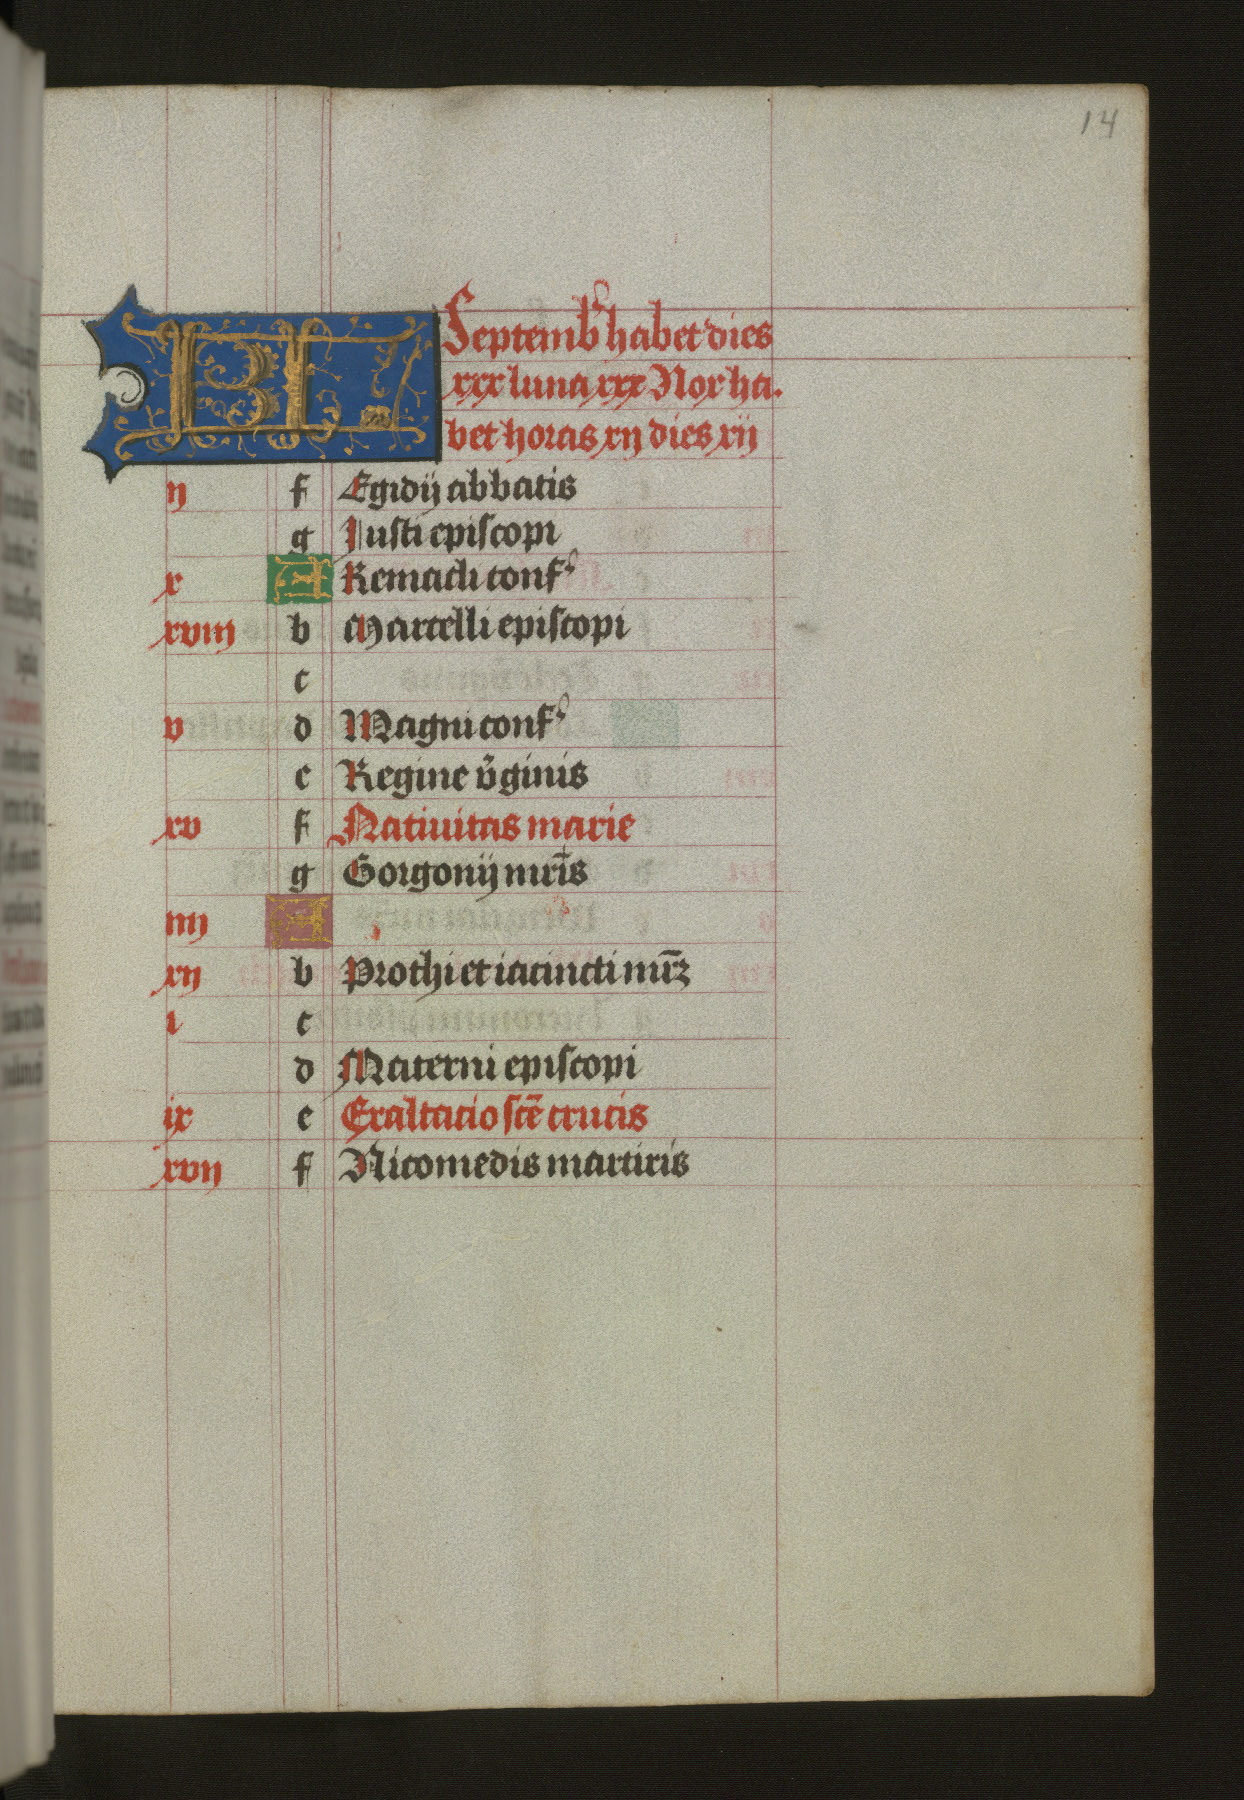 14
KL Septemb' habet dies
xxx luna xxx Nox ha.
bet horas xij dies xij
ij f Egidij abbatis
g Justi episcopi
x A Remacli conf'
xviij b Marcelli episcopi
c
v d Magni conf'
e Regine v̄ginis
xv f Natiuitas marie
g Gorgonij mr̄is
iiij A
xij b Prothi et iacincti mr̄ꝫ
i c
d Materni episcopi
ix e Exaltatio sc̄e crucis
xvij f Nicomedis martiris